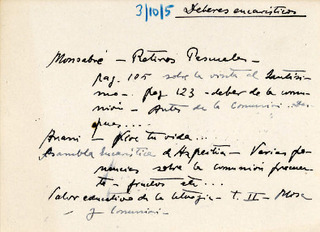 3/10/5 Deberes eucarísticos
Monsabré - Retiros Pascuales -
pag. 105 sobre la visita al Santísi-
mo - pag 123 - deber de la comu-
nión - Antes de la Comunión. Des-
pues...
Vive tu vida...
Asamblea Eucarística de Azpeitia - Varias po-
nencias sobre la comunión frecuen-
te - frutos etc...
Valor educativo de la Liturgia - T. II - Misa
y Comunión -